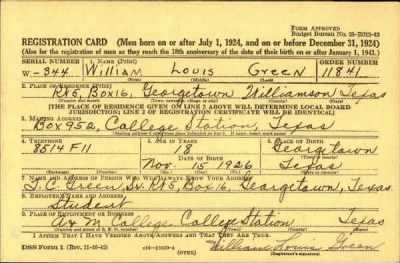 FORM APPROVED
Budget Bureau No. 33-R012-43
REGISTRATION CARD (Men born on or after July 1, 1924, and on or before December 31, 1924)
(Also for the registration of men as they reach the 18th anniversary of the date of their birth on or after January 1, 1943.)
SERIAL NUMBER 1. NAME (Print) ORDER NUMBER
W-344 William Louis Green 11841
2. PLACE OF RESIDENCE (Print)
R#5, Box 16, Georgetown Williamson Texas
[THE PLACE OF RESIDENCE GIVEN ON LINE 2 ABOVE WILL DETERMINE LOCAL BOARD
JURISDICTION; LINE 2 OF REGISTRATION CERTIFICATE WILL BE IDENTICAL]
3. MAILING ADDRESS
Box 952, College Station, Texas
4. TELEPHONE 5. AGE IN YEARS 6. PLACE OF BIRTH
8514 F11 18 Georgetown
DATE OF BIRTH
Nov. 15 1926 Texas
7. NAME AND ADDRESS OF PERSON WHO WILL ALWAYS KNOW YOUR ADDRESS
Green, Sr. R#5, Box 16, Georgetown, Texas
8. EMPLOYER'S NAME AND ADDRESS
Student
9. PLACE OF EMPLOYMENT OR BUSINESS
A & M College, College Station Texas
I AFFIRM THAT I HAVE VERIFIED ABOVE ANSWERS AND THAT THEY ARE TRUE.
DSS Form 1 (Rev. 11-16-42) (OVER) William Louis Green
(Registrant's signature)